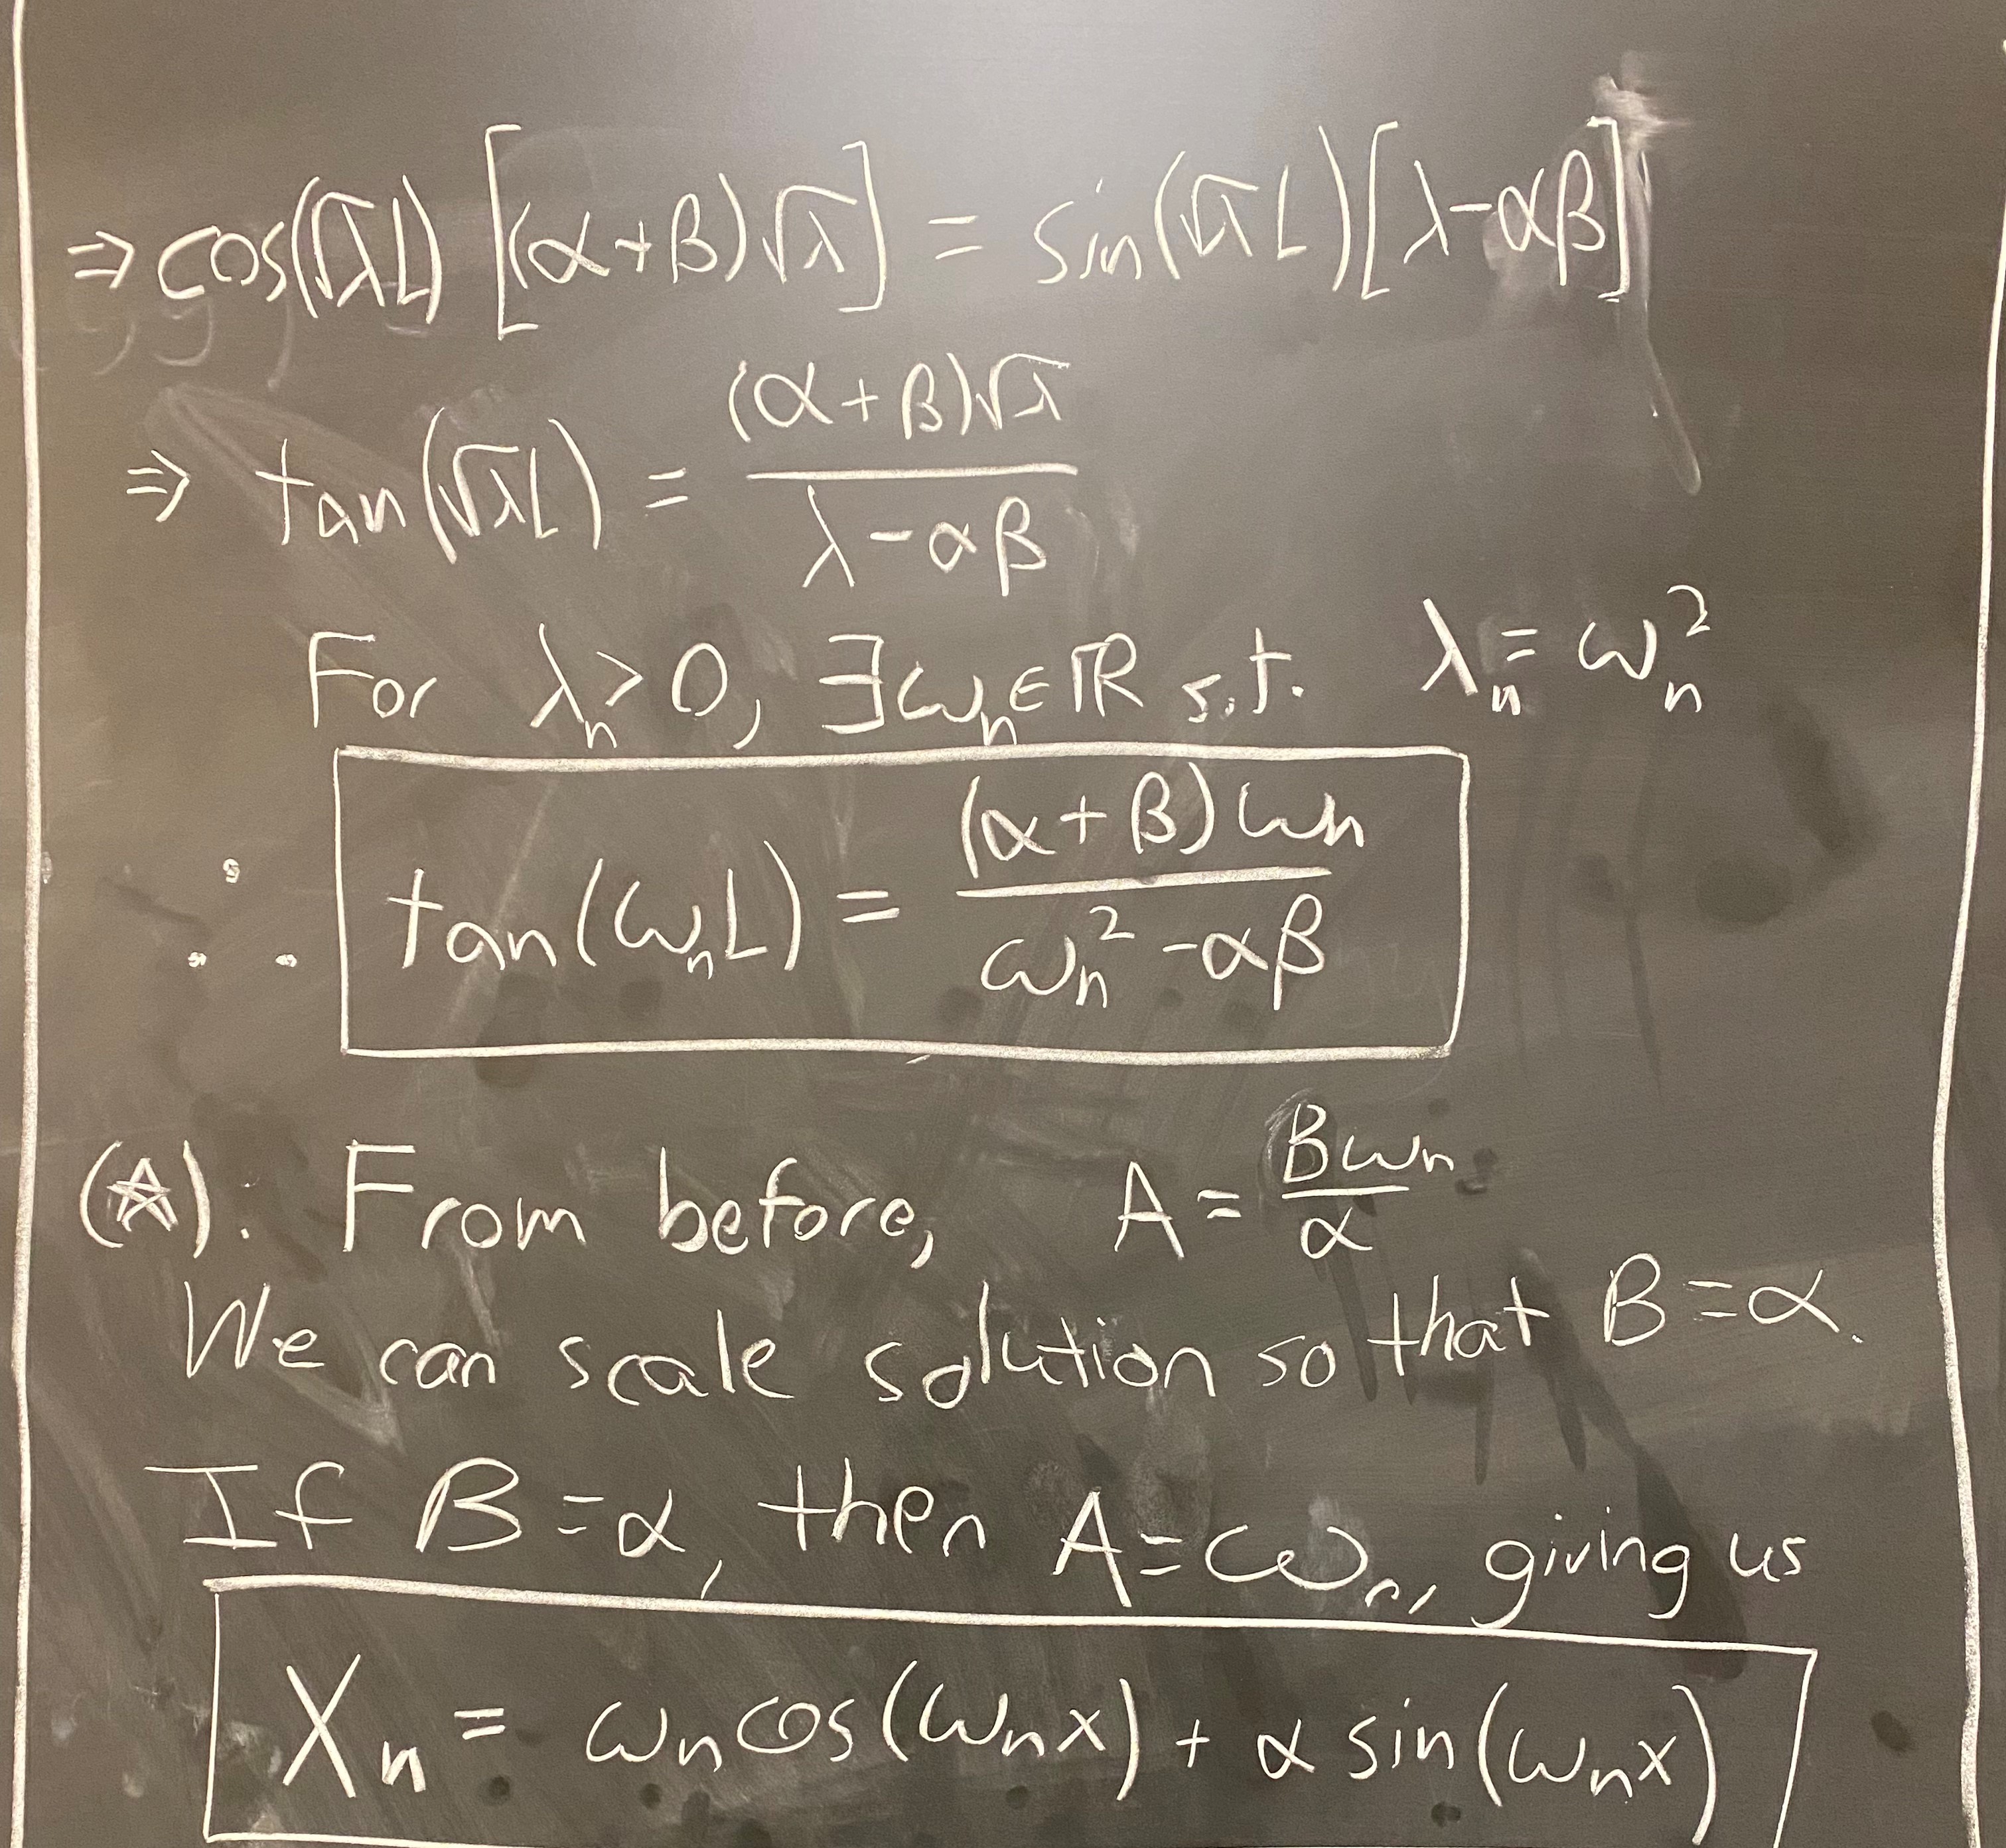 ⇒ cos(√λL) [(α+β)√λ] = sin(√λL)[λ-αβ]
⇒ tan(√λL) = (α+β)√λ / λ-αβ
For λₙ>0, ∃ωₙ∈ℝ s.t. λₙ = ωₙ²
∴ tan(ωₙL) = (α+β)ωₙ / ωₙ²-αβ
(☆). From before, A = Bωₙ / α
We can scale solution so that B=α.
If B=α, then A=ωₙ, giving us
Xₙ = ωₙcos(ωₙx) + α sin(ωₙx)